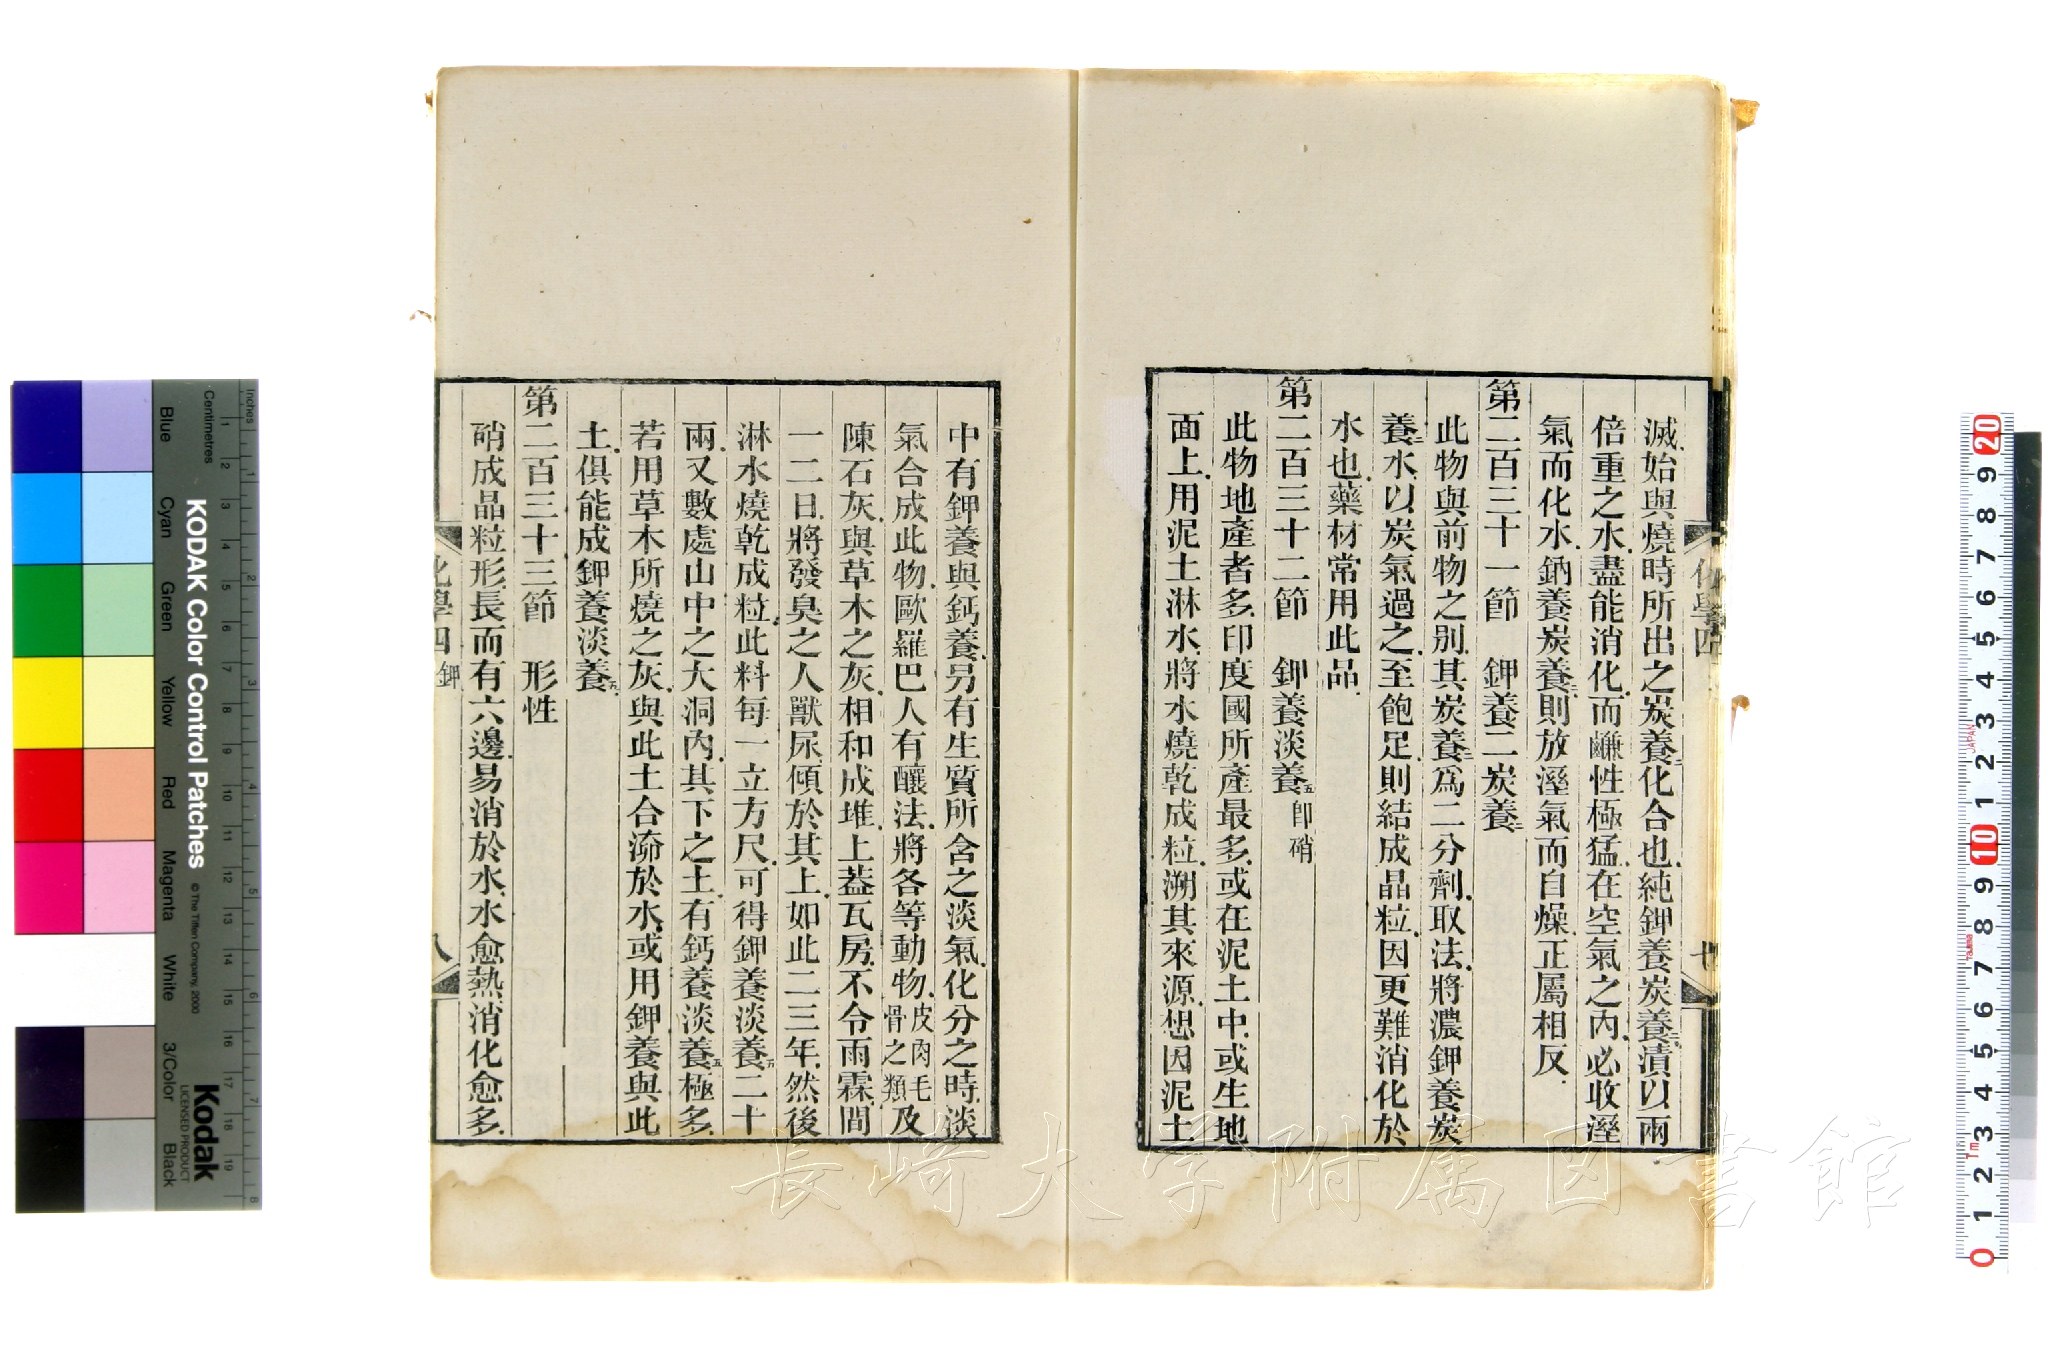 滅、始與燒時所出之炭養二化合也、純鉀養炭養二漬以兩
倍重之水、盡能消化、而鹻性極猛、在空氣之內、必收溼
氣而化水、鈉養炭養二則放溼氣而自燥、正屬相反、
第二百三十一節　鉀養二炭養二
此物與前物之別、其炭養二爲二分劑、取法、將濃鉀養炭
養二水、以炭氣過之、至飽足、則結成晶粒、因更難消化於
水也、藥材常用此品、
第二百三十二節　鉀養淡養五即硝
此物地產者多、印度國所產最多、或在泥土中、或生地
面上、用泥土淋水、將水燒乾成粒、溯其來源、想因泥土
中有鉀養與鈣養、另有生質所含之淡氣、化分之時、淡
氣合成此物、歐羅巴人有釀法、將各等動物、皮肉毛骨之類及
陳石灰、與草木之灰、相和成堆、上葢瓦房、不令雨霖、間
一二日、將發臭之人獸尿傾於其上、如此二三年、然後
淋水燒乾成粒、此料每一立方尺、可得鉀養淡養五二十
兩、又數處山中之大洞內、其下之土、有鈣養淡養五極多、
若用草木所燒之灰、與此土合㴆於水、或用鉀養與此
土、俱能成鉀養淡養五、
第二百三十三節　形性
硝成晶粒形、長而有六邊、易消於水、水愈熱、消化愈多、
化學四　鉀
八
化學四
KODAK Color Control Patches
© The Tiffen Company, 2000
Kodak
LICENSED PRODUCT
Blue Cyan Green Yellow Red Magenta White 3/Color Black
Inches 1 2 3 4 5 6 7 8
Centimetres 1 2 3 4 5 6 7 8 9 10 11 12 13 14 15 16 17 18 19
20 9 8 7 6 5 4 3 2 1 10 9 8 7 6 5 4 3 2 1 0
長崎大学附属図書館